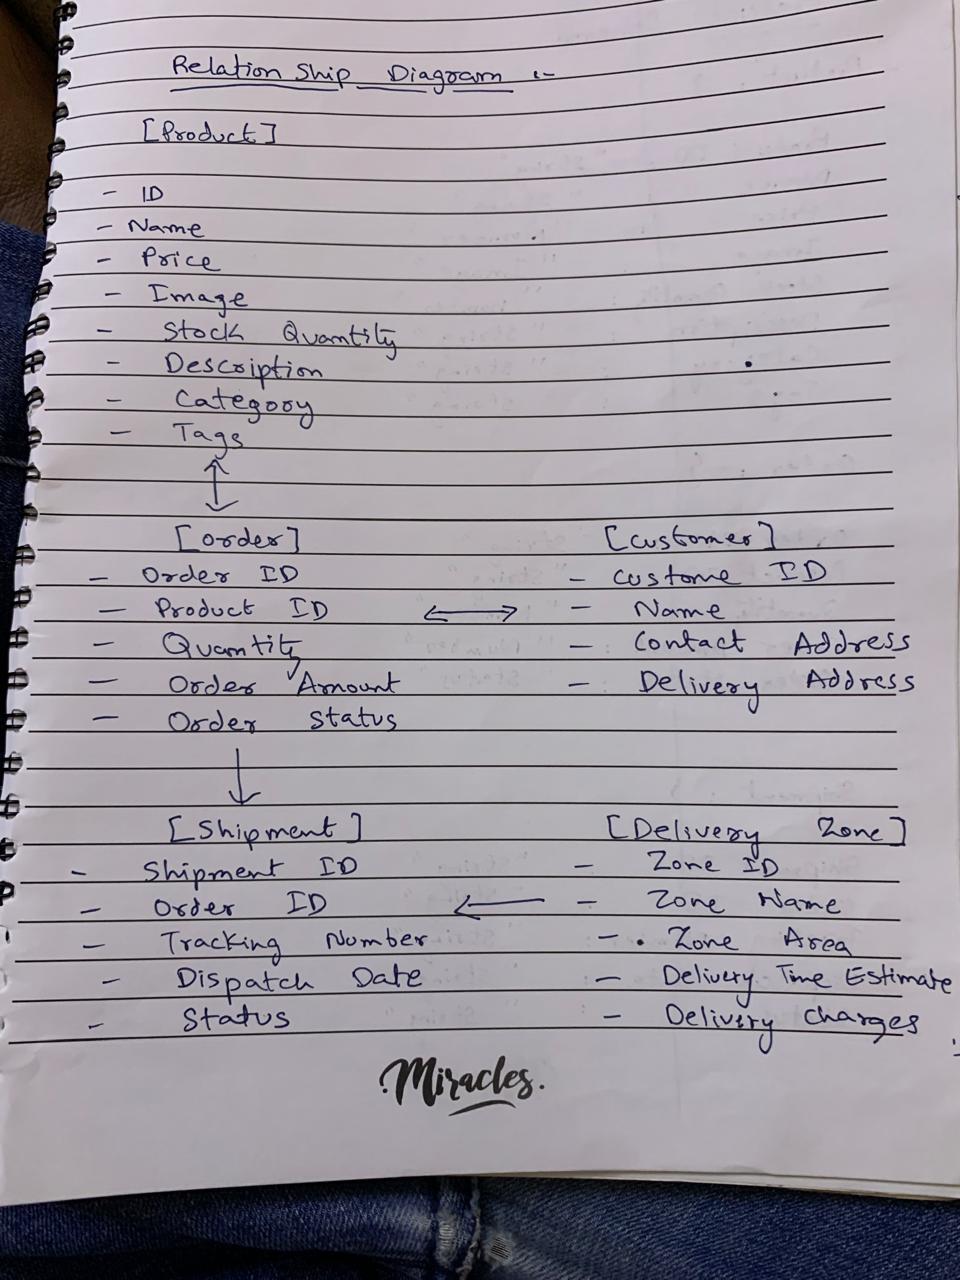 Relation Ship Diagram :-
[Product]
- ID
- Name
- Price
- Image
- Stock Quantity
- Description
- Category
- Tags
[Order]
- Order ID
- Product ID
- Quantity
- Order Amount
- Order Status
[Customer]
- Custome ID
- Name
- Contact Address
- Delivery Address
[Shipment]
- Shipment ID
- Order ID
- Tracking Number
- Dispatch Date
- Status
[Delivery Zone]
- Zone ID
- Zone Name
- Zone Area
- Delivery Time Estimate
- Delivery Charges
Miracles.